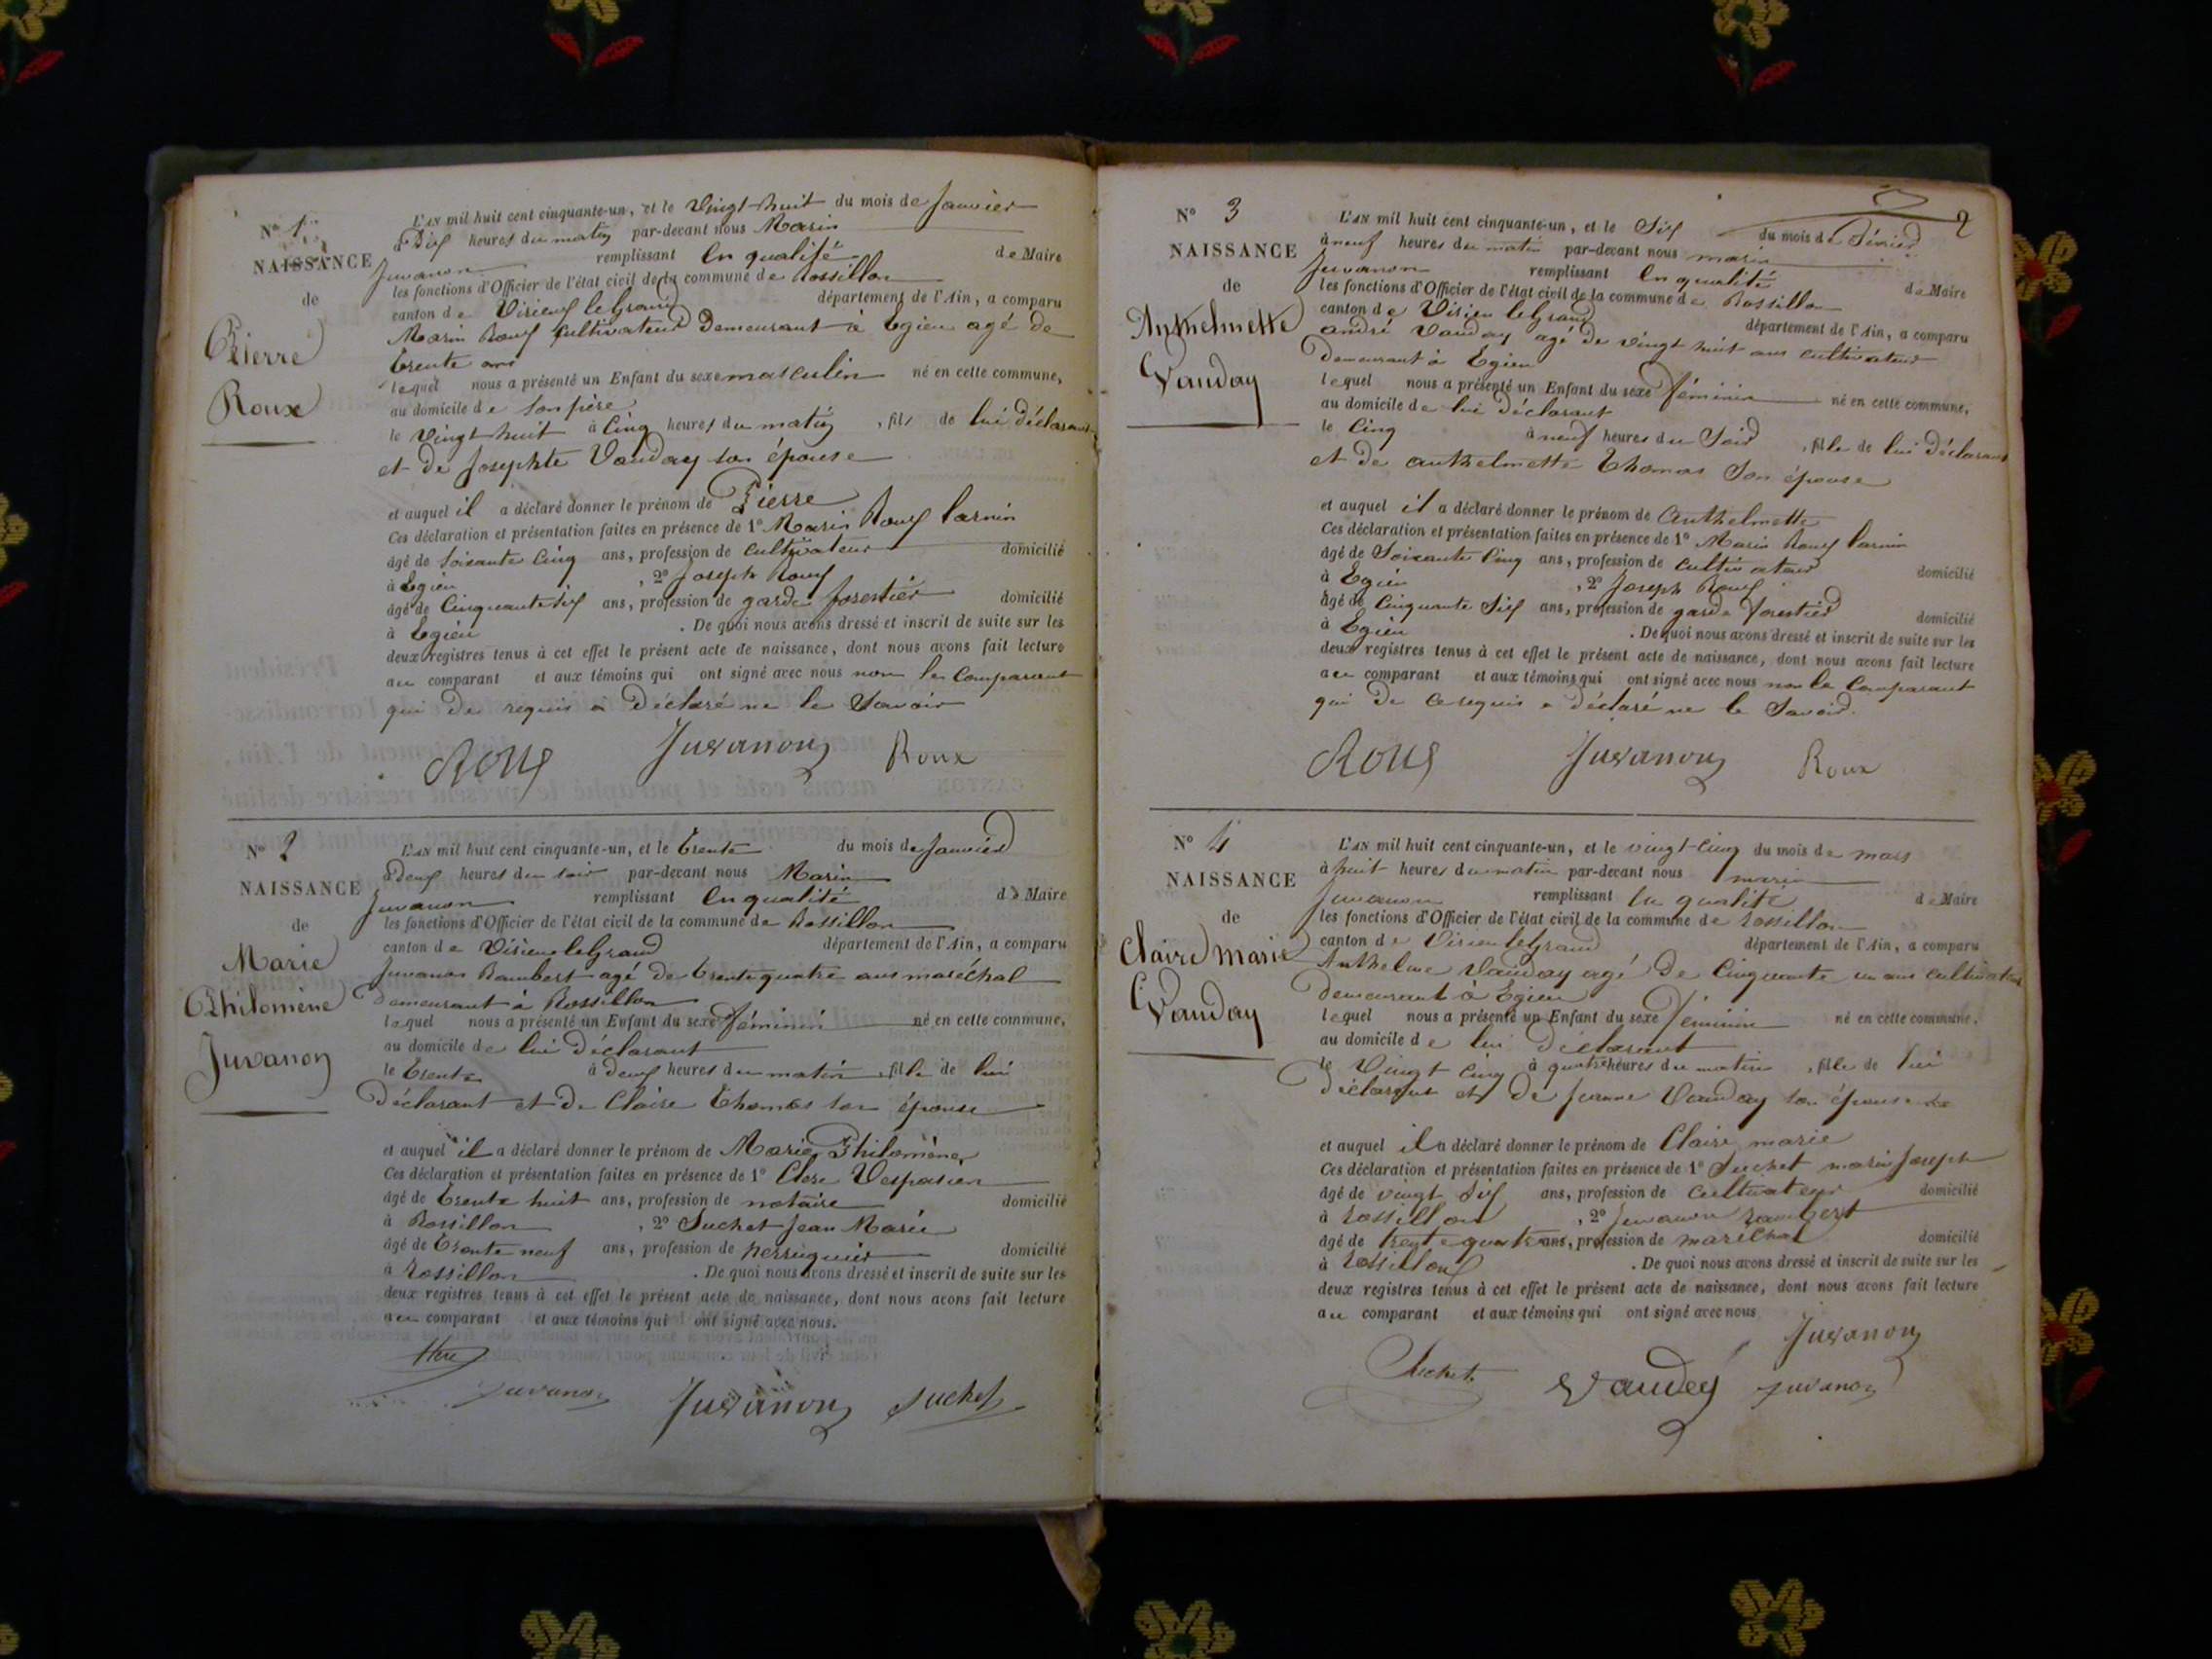 N° 1
NAISSANCE
de
Pierre
Roux
L'AN mil huit cent cinquante-un, et le vingt huit du mois de Janvier
à Dix heures du matin par-devant nous Marin
Juvanon remplissant En qualité de Maire
les fonctions d'Officier de l'état civil de la commune de Rossillon
canton de Virieux le Grand département de l'Ain, a comparu
Marin Roux Cultivateur Demeurant à Egieu agé de
trente ans
lequel nous a présenté un Enfant du sexe masculin né en cette commune,
au domicile de son père
le vingt huit à Cinq heures du matin, fils de lui déclarant
et de Josephte Vauday son épouse
et auquel il a déclaré donner le prénom de Pierre
Ces déclaration et présentation faites en présence de 1° Marin Roux
âgé de soixante Cinq ans, profession de Cultivateur domicilié
à Egieu, 2° Joseph Roux
âgé de Cinquante six ans, profession de garde forestier domicilié
à Egieu. De quoi nous avons dressé et inscrit de suite sur les
deux registres tenus à cet effet le présent acte de naissance, dont nous avons fait lecture
au comparant et aux témoins qui ont signé avec nous non le Comparant
qui De requis a Déclaré ne le Savoir
Roux Juvanon Roux
N° 2
NAISSANCE
de
Marie
Philomène
Juvanon
L'AN mil huit cent cinquante-un, et le trente du mois de Janvier
à deux heures du soir par-devant nous Marin
Juvanon remplissant En qualité de Maire
les fonctions d'Officier de l'état civil de la commune de Rossillon
canton de Virieu le Grand département de l'Ain, a comparu
Juvanon Rambert agé de trente quatre ans maréchal
Demeurant à Rossillon
lequel nous a présenté un Enfant du sexe féminin né en cette commune,
au domicile de lui Déclarant
le trente à deux heures du matin, fille de lui
Déclarant et De Claire Thomas son épouse
et auquel il a déclaré donner le prénom de Marie Philomène
Ces déclaration et présentation faites en présence de 1° Vespasien
âgé de trente huit ans, profession de notaire domicilié
à Rossillon, 2° Suchet Jean Marie
âgé de trente neuf ans, profession de perruquier domicilié
à Rossillon. De quoi nous avons dressé et inscrit de suite sur les
deux registres tenus à cet effet le présent acte de naissance, dont nous avons fait lecture
au comparant et aux témoins qui ont signé avec nous.
Juvanon Juvanon Suchet
2
N° 3
NAISSANCE
de
Anthelmette
Vauday
L'AN mil huit cent cinquante-un, et le Six du mois de Février
à neuf heures du matin par-devant nous marin
Juvanon remplissant En qualité de Maire
les fonctions d'Officier de l'état civil de la commune de Rossillon
canton de Virieu le Grand département de l'Ain, a comparu
andré Vauday agé de vingt huit ans cultivateur
Demeurant à Egieu
lequel nous a présenté un Enfant du sexe féminin né en cette commune,
au domicile de lui Déclarant
le Cinq à neuf heures du Soir, fille de lui Déclarant
et De anthelmette Thomas Son épouse
et auquel il a déclaré donner le prénom de Anthelmette
Ces déclaration et présentation faites en présence de 1° Marin Roux
âgé de Soixante Cinq ans, profession de Cultivateur domicilié
à Egieu, 2° Joseph Roux
âgé de Cinquante Six ans, profession de garde forestier domicilié
à Egieu. De quoi nous avons dressé et inscrit de suite sur les
deux registres tenus à cet effet le présent acte de naissance, dont nous avons fait lecture
au comparant et aux témoins qui ont signé avec nous non le Comparant
qui De ce requis a déclaré ne le Savoir.
Roux Juvanon Roux
N° 4
NAISSANCE
de
Claire marie
Vauday
L'AN mil huit cent cinquante-un, et le vingt-Cinq du mois de mars
à huit heures du matin par-devant nous marin
Juvanon remplissant En qualité de Maire
les fonctions d'Officier de l'état civil de la commune de Rossillon
canton de Virieu le Grand département de l'Ain, a comparu
Anthelme Vauday agé De Cinquante un ans Cultivateur
Demeurant à Egieu
lequel nous a présenté un Enfant du sexe féminin né en cette commune,
au domicile de lui Déclarant
le Vingt Cinq à quatre heures du matin, fille de lui
Déclarant et De Jeanne Vauday son épouse
et auquel il a déclaré donner le prénom de Claire marie
Ces déclaration et présentation faites en présence de 1° Suchet marin Joseph
âgé de vingt Six ans, profession de Cultivateur domicilié
à Rossillon, 2° Juvanon Rambert
âgé de trente quatre ans, profession de maréchal domicilié
à Rossillon. De quoi nous avons dressé et inscrit de suite sur les
deux registres tenus à cet effet le présent acte de naissance, dont nous avons fait lecture
au comparant et aux témoins qui ont signé avec nous
Juvanon
Suchet Vaudey Juvanon